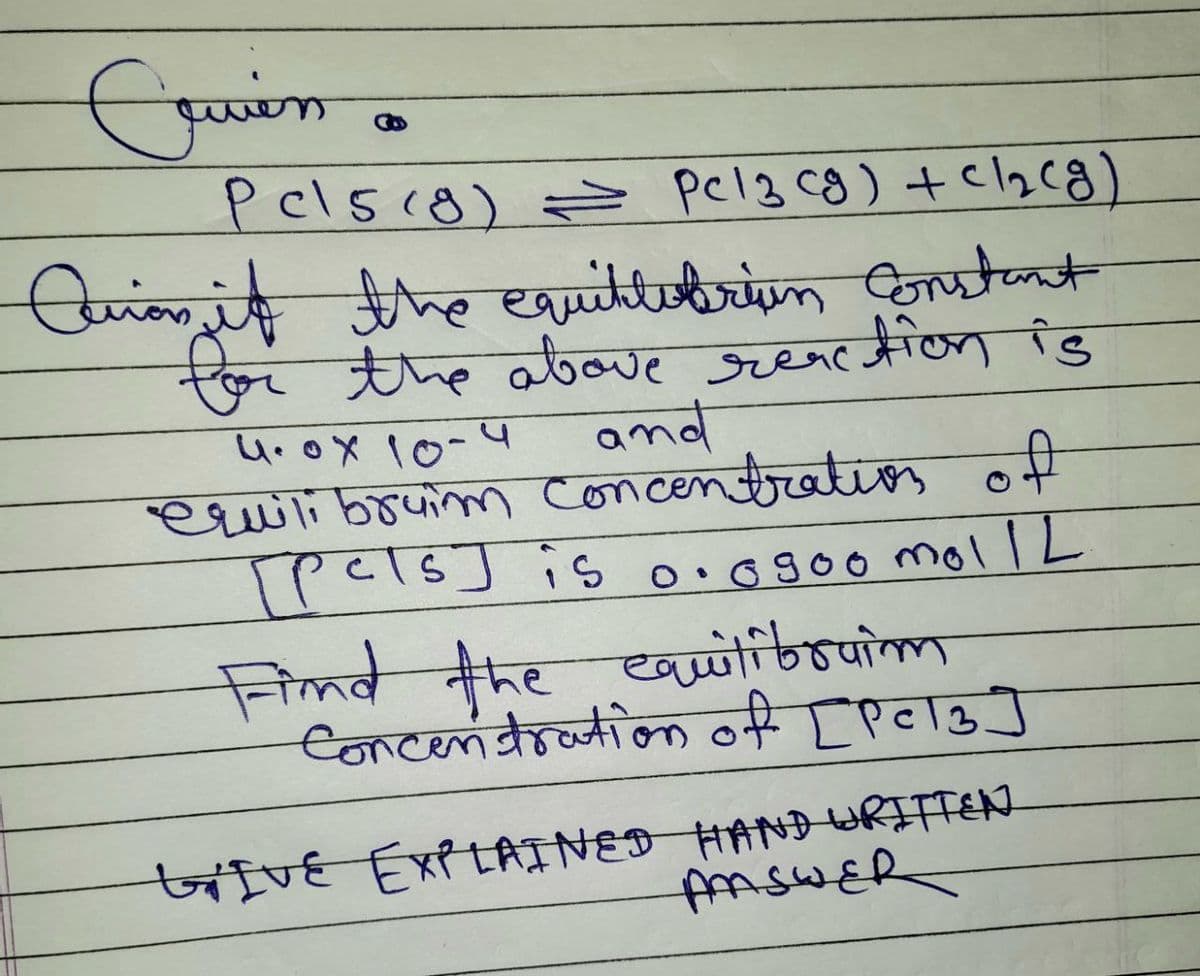 Given
Pcl5(g) ⇌ Pcl3(g) + cl2(g)
if the equilibrium Constant
for the above reaction is
4.0x10-4 and
equilibruim Concentration of
[Pcl5] is 0.0900 mol/L
Find the equilibruim
Concentration of [Pcl3]
GIVE EXPLAINED HAND WRITTEN
AnSWER